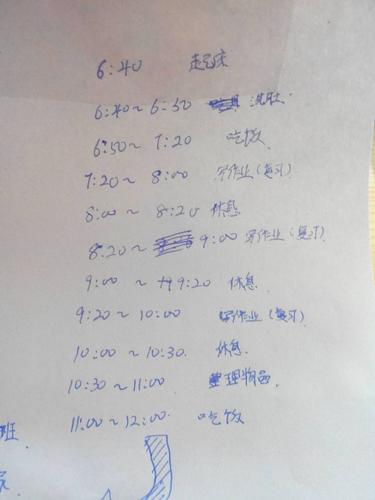 6:40 起床
6:40~6:50 洗肚
6:50~7:20 吃饭
7:20~8:00 写作业(复习)
8:00~8:20 休息
8:20~9:00 写作业(复习)
9:00~9:20 休息
9:20~10:00 写作业(复习)
10:00~10:30. 休息.
10:30~11:00 整理物品.
11:00~12:00. 吃饭
班